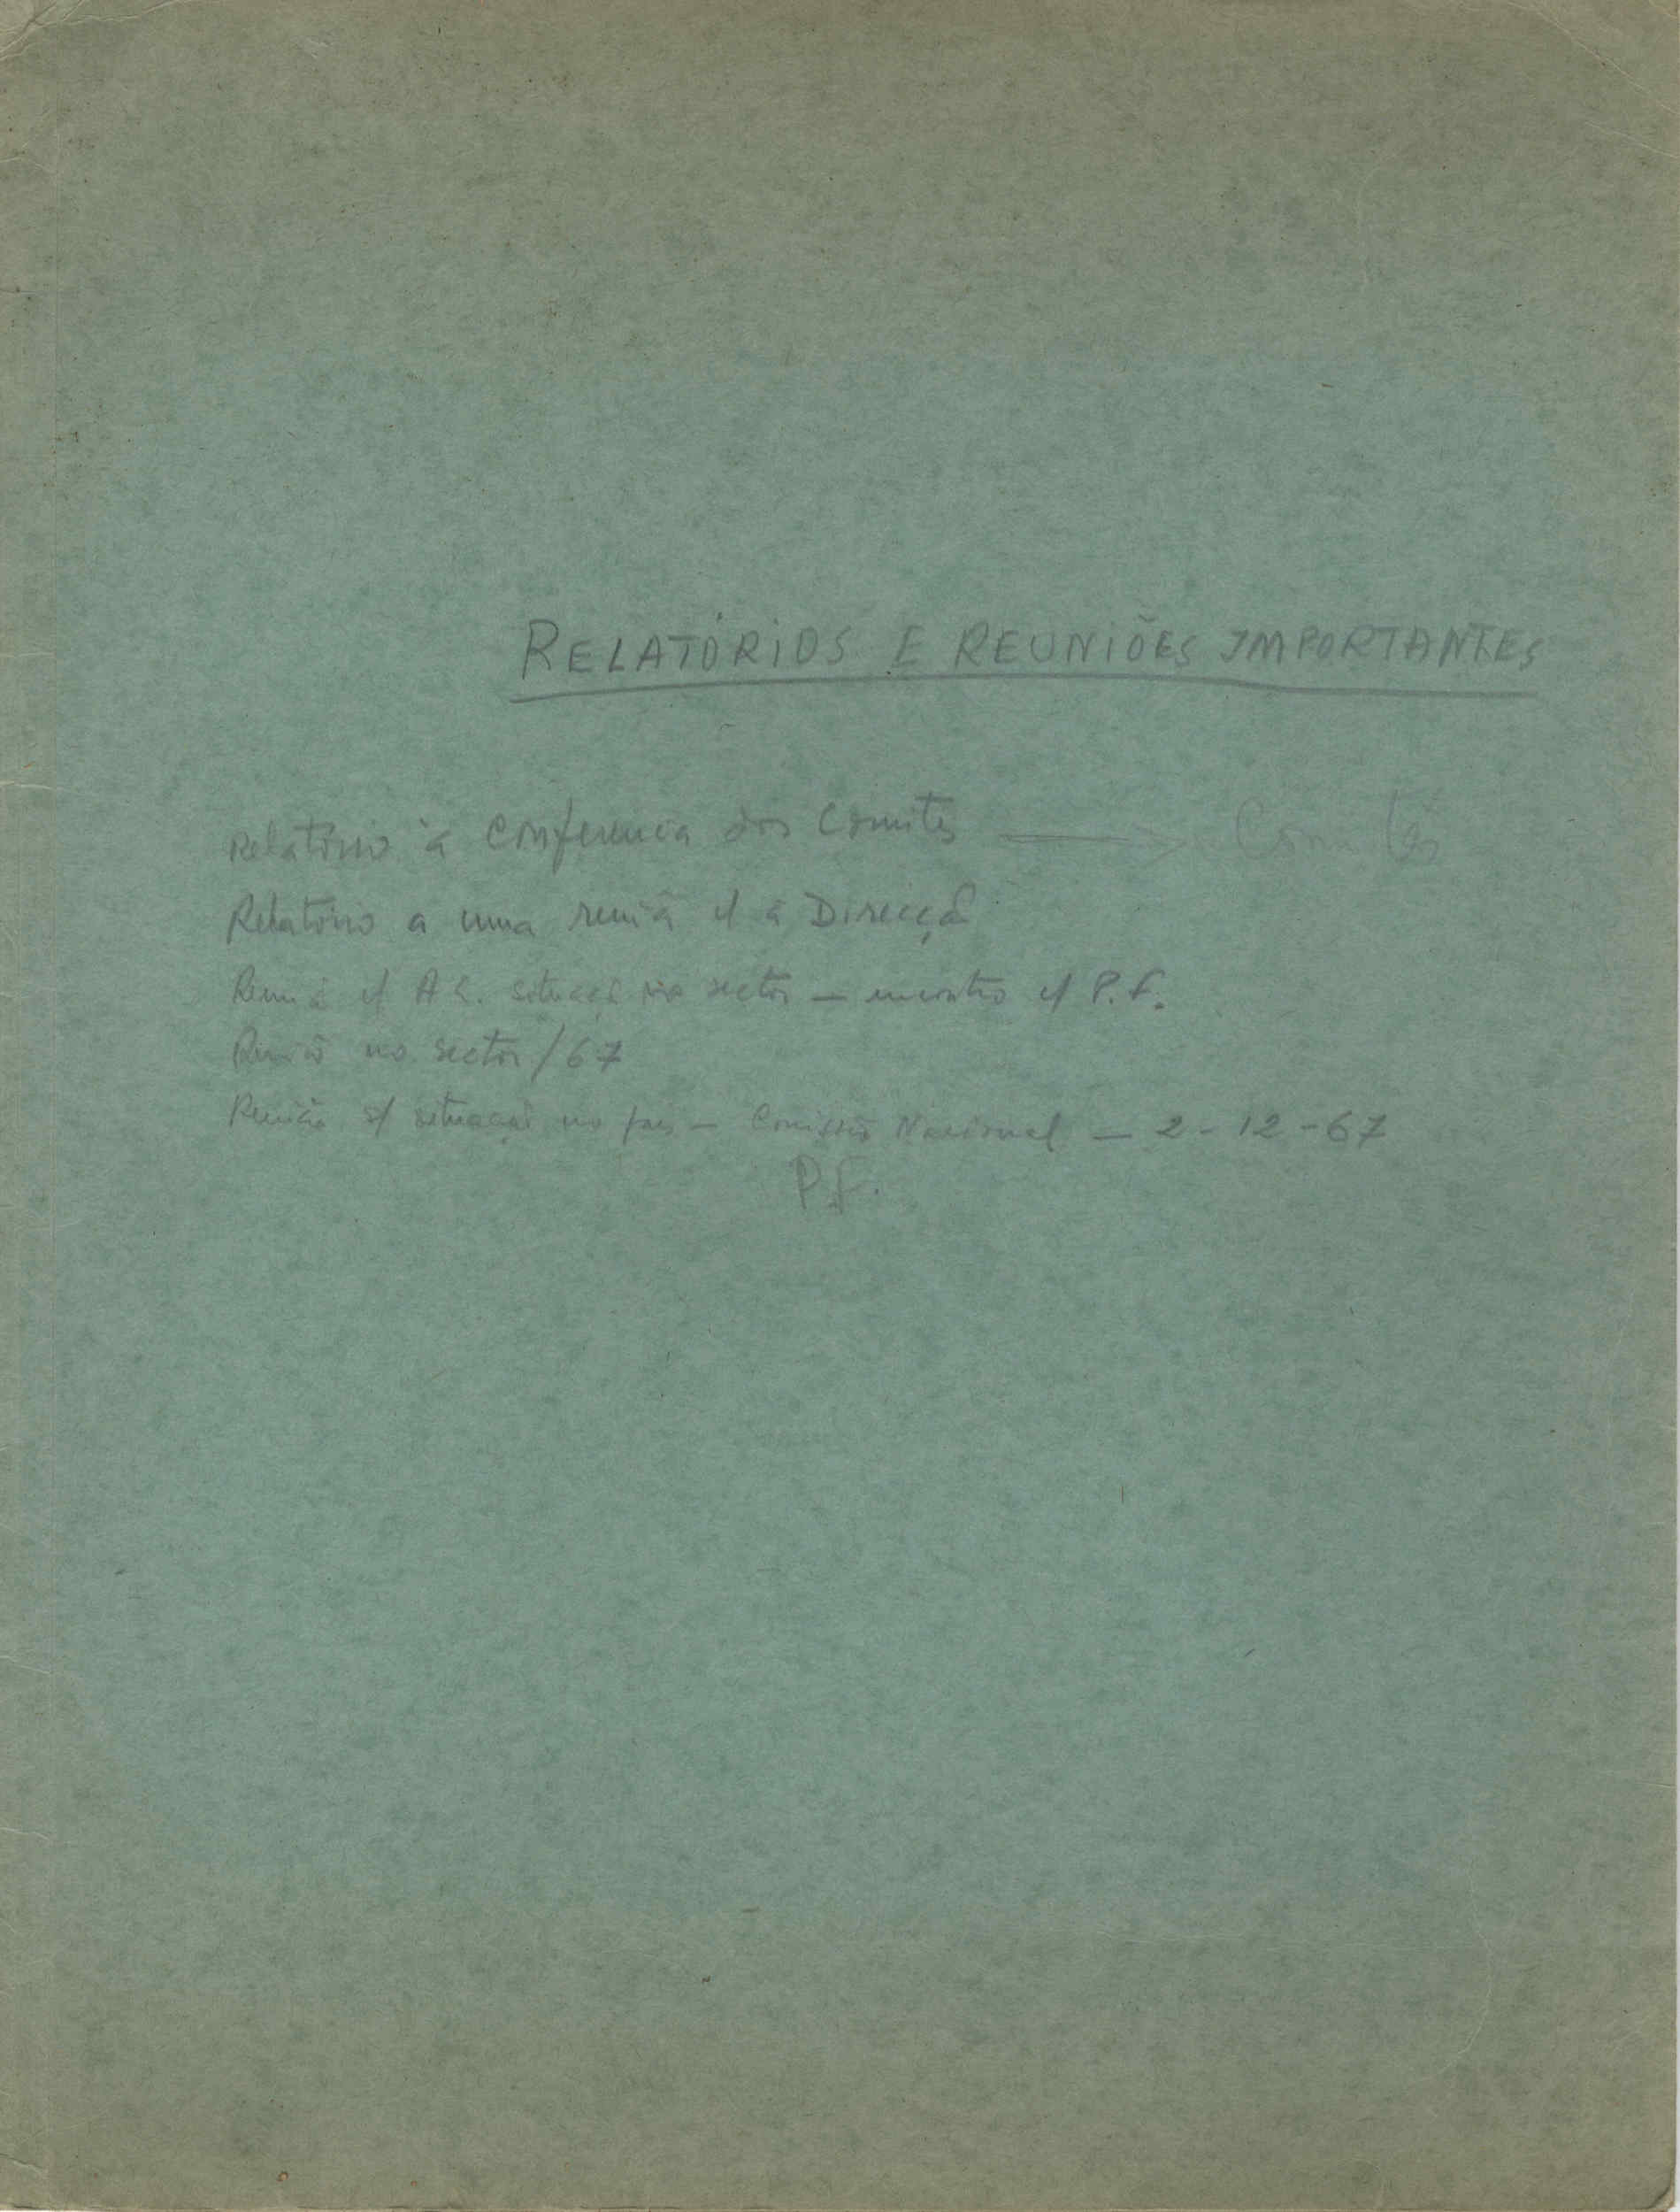 RELATÓRIOS E REUNIÕES IMPORTANTES
Relatório à Conferencia dos Comités → Comités
Relatório a uma reuniã c/ a Direcçã
Reuniã c/ A C. situaçã no sector — encontro c/ P. F.
Reuniã no sector/67
Reunião s/ situaçaõ no país — Comissão Nacional — 2-12-67
P.F.